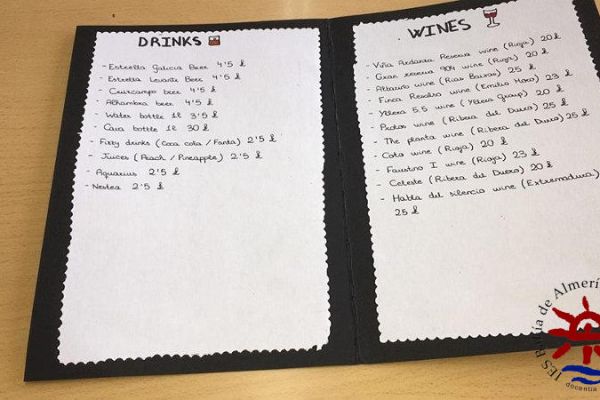 DRINKS
- Estrella Galicia Beer 4'5 £
- Estrella Levante Beer 4'5 £
- Cruzcampo beer 4'5 £
- Alhambra beer 4'5 £
- Water bottle 1l 3'5 £
- Cava bottle 1l 30 £
- Fizzy drinks (Coca cola / Fanta) 2'5 £
- Juices (Peach / Pineapple) 2'5 £
- Aquarius 2'5 £
- Nestea 2'5 £
WINES
- Viña Ardanza Reserva wine (Rioja) 20 £
- Gran reserva 904 wine (Rioja) 20 £
- Albariño wine (Rias Baixas) 25 £
- Finca Resalso wine (Emilio Moro) 23 £
- Yllera 5.5 wine (Yllera Group) 20 £
- Protos wine (Ribera del Duero) 25 £
- The planta wine (Ribera del Duero) 25 £
- Coto wine (Rioja) 20 £
- Faustino I wine (Rioja) 23 £
- Celeste (Ribera del Duero) 20 £
- Habla del silencio wine (Extremadura)
25 £
IES Bahía de Almerí
docentia